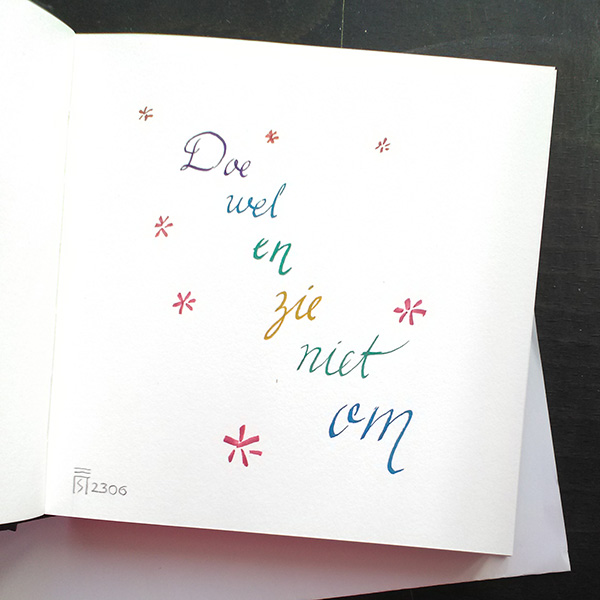 Doe
wel
en
zie
niet
om
2306